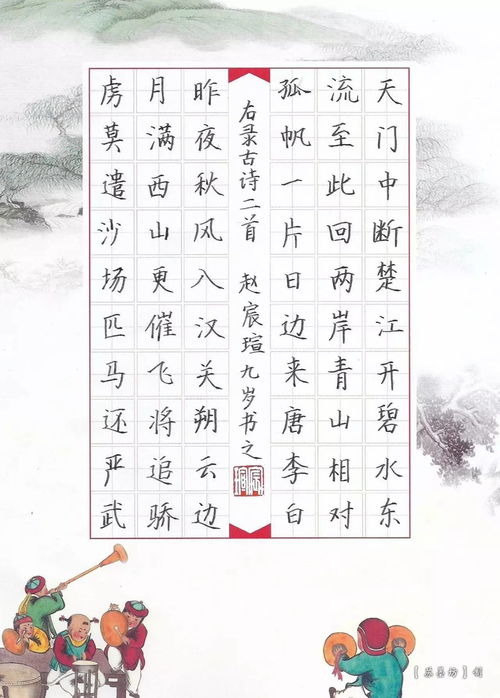 天门中断楚江开碧水东
流至此回两岸青山相对
孤帆一片日边来唐李白
右录古诗二首 赵宸瑄九岁书之
昨夜秋风入汉关朔云边
月满西山更催飞将追骄
虏莫遣沙场匹马还严武